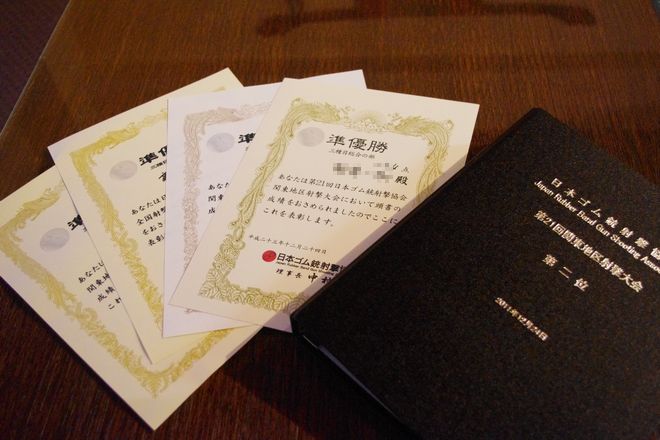 準
あなたは
関東地
成績
これ
準
三種
あなたは
全国射撃
成績
表彰し
準優
三種目
あなたは第
関東地区射
成績をおさ
これを表
準優勝
三種目総合の部
点
殿
あなたは第21回日本ゴム銃射撃協会
関東地区射撃大会において頭書の
成績をおさめられましたのでここに
これを表彰します。
平成二十三年十二月二十四日
日本ゴム銃射撃協
Japan Rubber Band Gun Shooting
理事長 中村
日本ゴム銃射撃協
Japan Rubber Band Gun Shooting Associa
第21回関東地区射撃大会
第二位
2011年12月24日